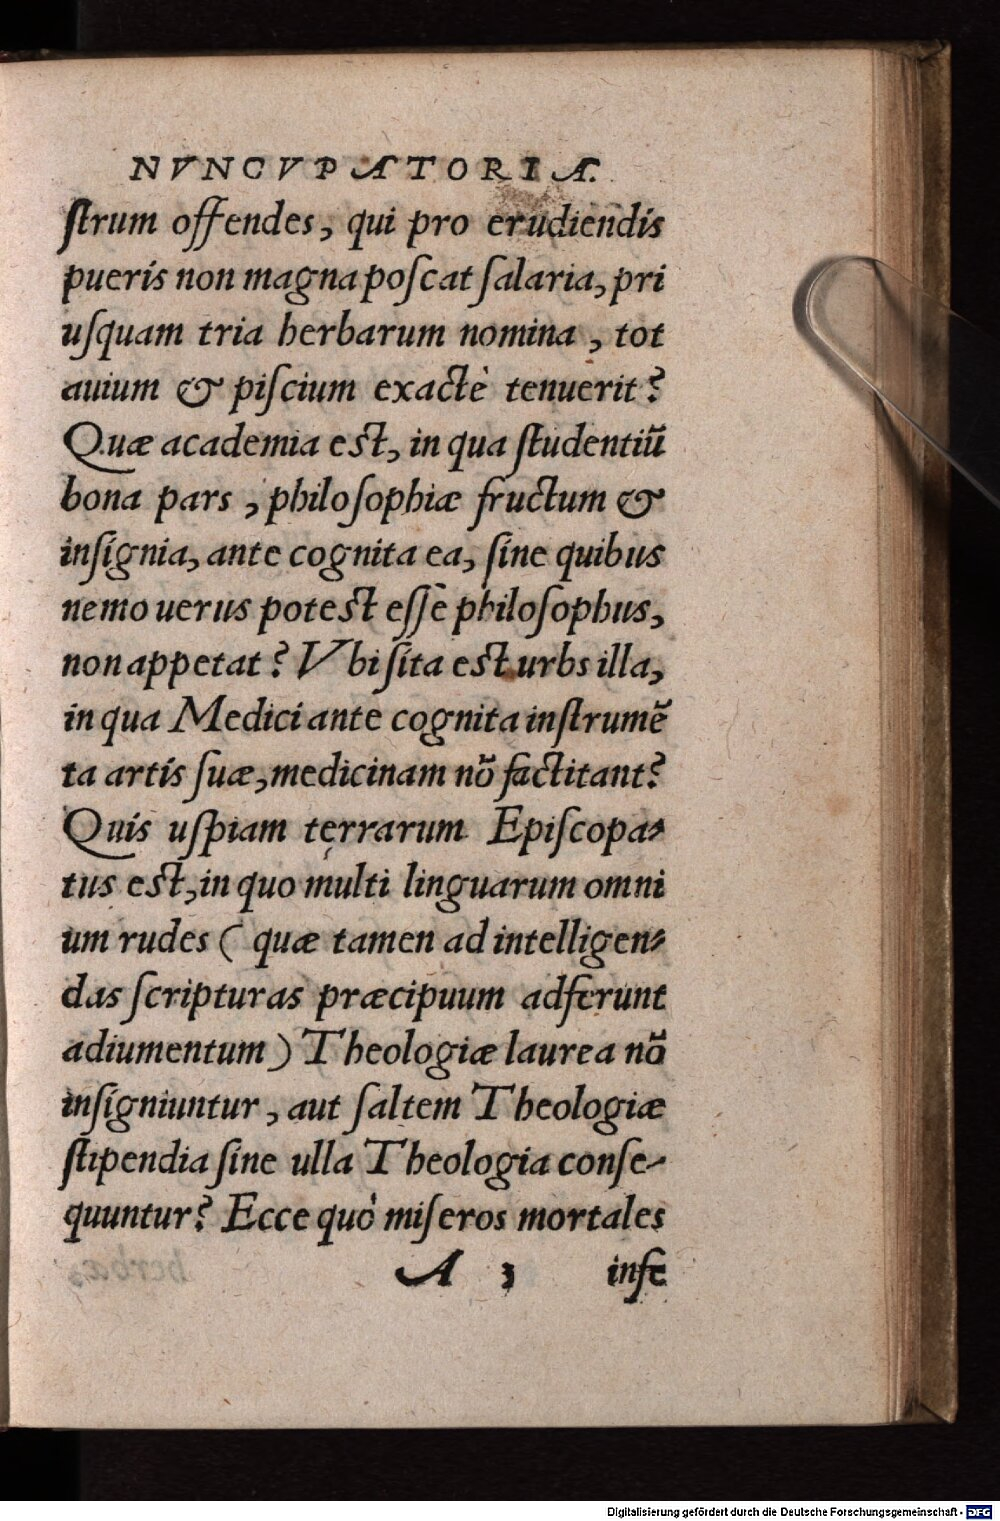 NVNCVPATORIA.
ſtrum offendes, qui pro erudiendis
pueris non magna poſcat ſalaria, pri
uſquam tria herbarum nomina, tot
auium & piſcium exactè tenuerit?
Quæ academia est, in qua ſtudentiũ
bona pars, philoſophiæ fructum &
inſignia, ante cognita ea, ſine quibus
nemo uerus potest eſſe philoſophus,
non appetat? Vbi ſita est urbs illa,
in qua Medici ante cognita inſtrumẽ
ta artis ſuæ, medicinam nõ factitant?
Quis uſpiam terrarum Epiſcopa-
tus est, in quo multi linguarum omni
um rudes ( quæ tamen ad intelligen-
das ſcripturas præcipuum adferunt
adiumentum ) Theologiæ laurea nõ
inſigniuntur, aut ſaltem Theologiæ
ſtipendia ſine ulla Theologia conſe-
quuntur? Ecce quò miſeros mortales
A 3 inſe
Digitalisierung gefördert durch die Deutsche Forschungsgemeinschaft - DFG